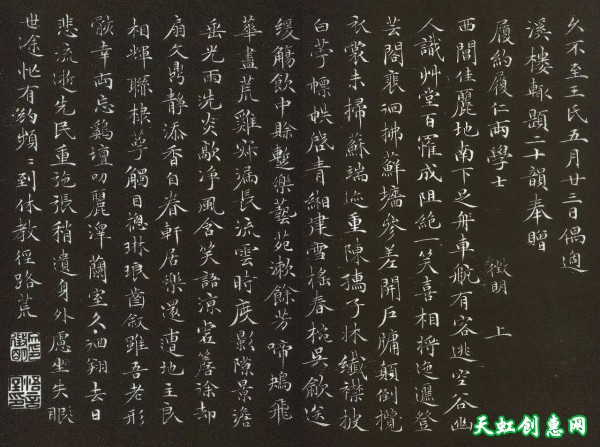 久不至王氏五月廿三日偶過
溪樓輒題二十韻奉贈
履約履仁兩學士
徵明 上
西閶佳麗地南下足舟車有客逃空谷幽
人識艸堂百罹成阻絶一笑喜相將迤邐登
芸閣裴徊拂鮮墻參差開戶牖顛倒攬
衣裳未掃蘇端迹重陳孺子牀纖襟披
白苧幖帙啟青緗建雪榣春椀吳歈送
緩觴飲中賒樂藝苑漱餘芳啼鴂飛
華盡荒雞漏長流雲時度影隙景澹
岳光雨洗炎歊淨風含笑語涼簷涂却
扇久鼎靜添香自眷軒居樂還遭地主良
相輝聯棣萼觸目總琳琅齒敘雖吾老形
骸幸兩忘鷄壇叨麗澤蘭室久徊翔去日
悲流逝先民重弛張稍遺身外慮坐失眼
世途忙有約頻〻到休教徑路荒
天虹创惠网